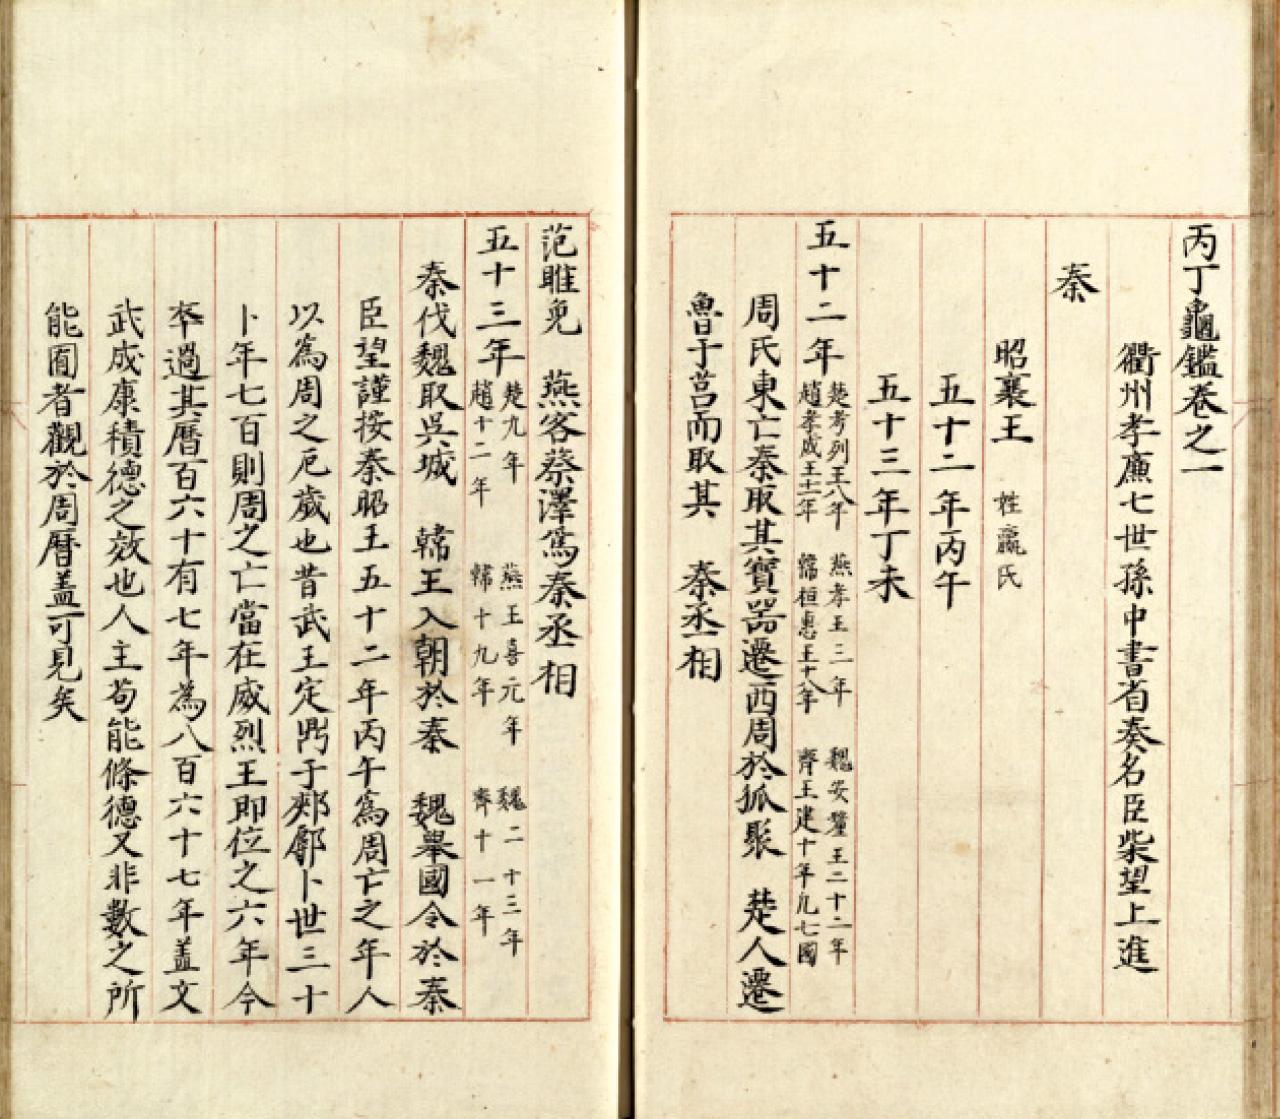 丙丁龜鑑卷之一
衢州孝廉七世孫中書省奏名臣柴望上進
秦
昭襄王 姓嬴氏
五十二年丙午
五十三年丁未
五十二年 楚考列王八年 燕孝王三年 魏安釐王二十二年
趙孝成王十一年 韓桓惠王十八年 齊王建十年凡七國
周氏東亡秦取其寶器遷西周於狐聚 楚人遷
魯于莒而取其 秦丞相
范睢免 燕客蔡澤爲秦丞相
五十三年 楚九年 燕王喜元年 魏二十三年
趙十二年 韓十九年 齊十一年
秦伐魏取吳城 韓王入朝於秦 魏舉國令於秦
臣望謹按秦昭王五十二年丙午爲周亡之年人
以爲周之厄歲也昔武王定鼎于郟鄏卜世三十
卜年七百則周之亡當在威烈王即位之六年今
率過其曆百六十有七年為八百六十七年盖文
武成康積德之效也人主苟能條德又非數之所
能囿者觀於周曆盖可見矣